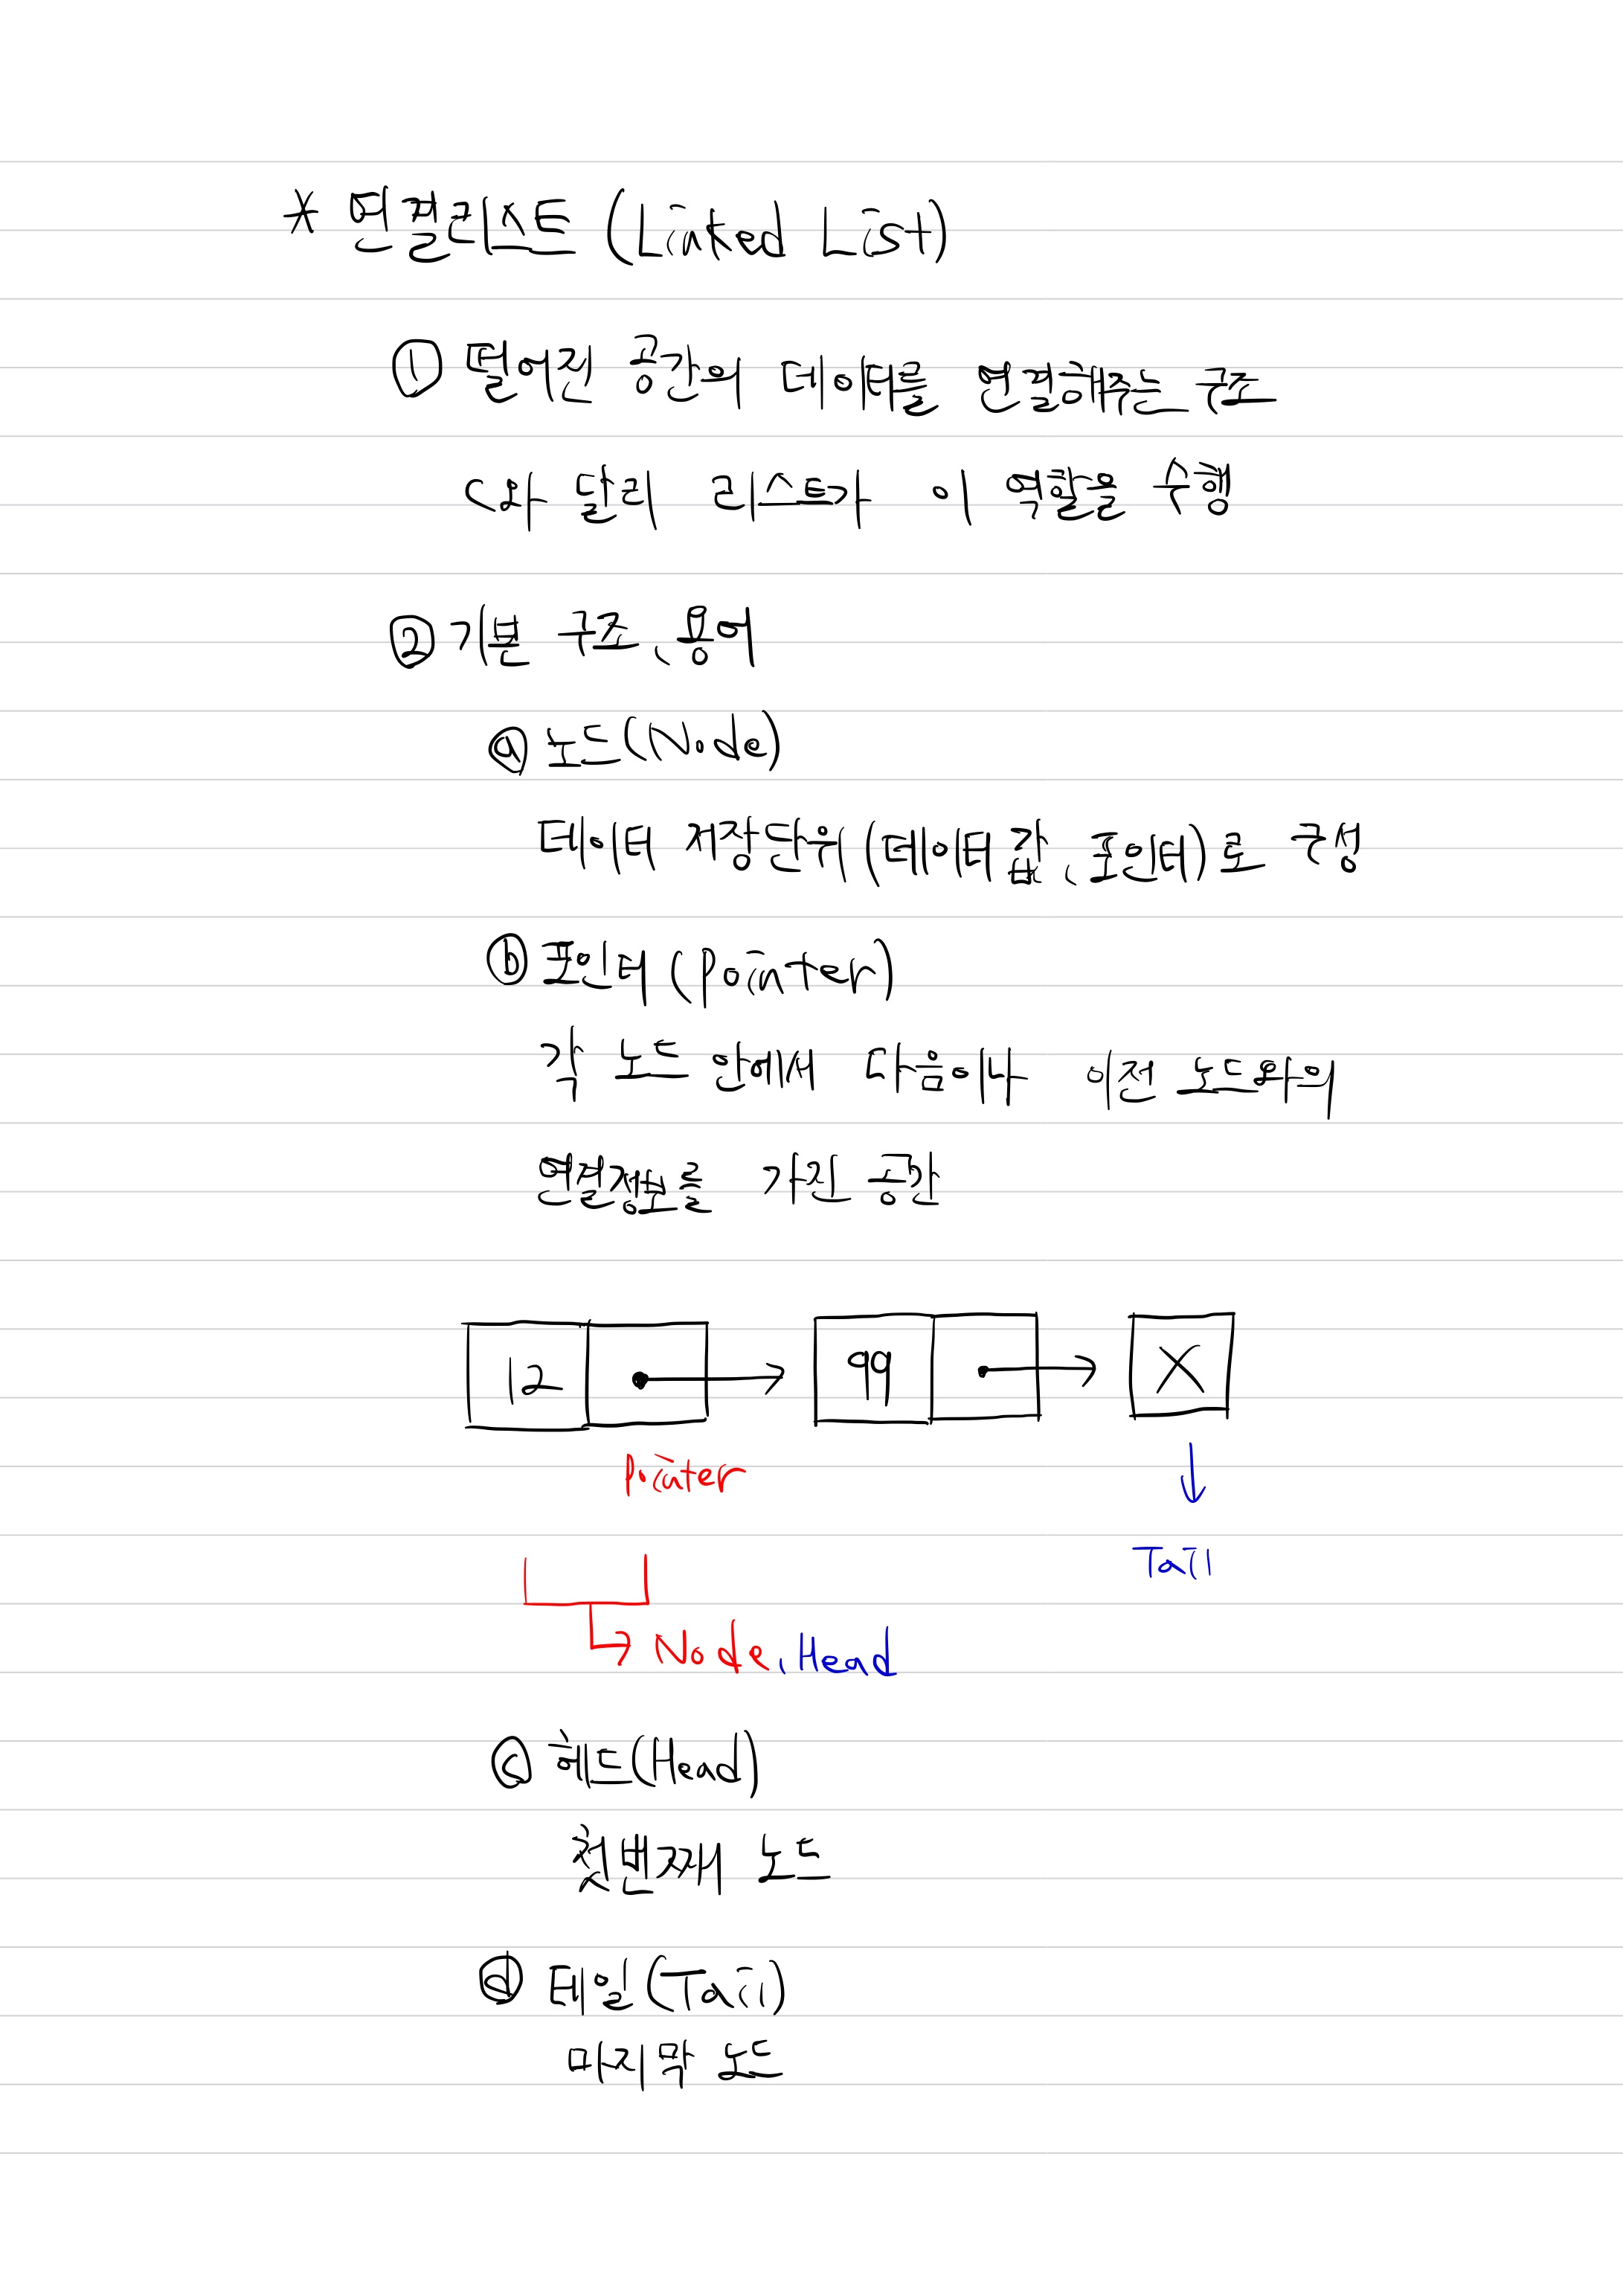 * 연결리스트 (Linked List)
① 떨어진 공간의 데이터를 연결해주는 구조
C와 달리 리스트가 이 역할을 수행
② 기본 구조, 용어
ⓐ 노드(Node)
데이터 저장단위 (데이터 값, 포인터)로 구성
ⓑ 포인터 (pointer)
각 노드 안에서 다음이나 이전 노드와의
연결정보를 가진 공간
12 99 X
pointer
Tail
Node, Head
ⓒ 헤드(Head)
첫번째 노드
ⓓ 테일(Tail)
마지막 노드